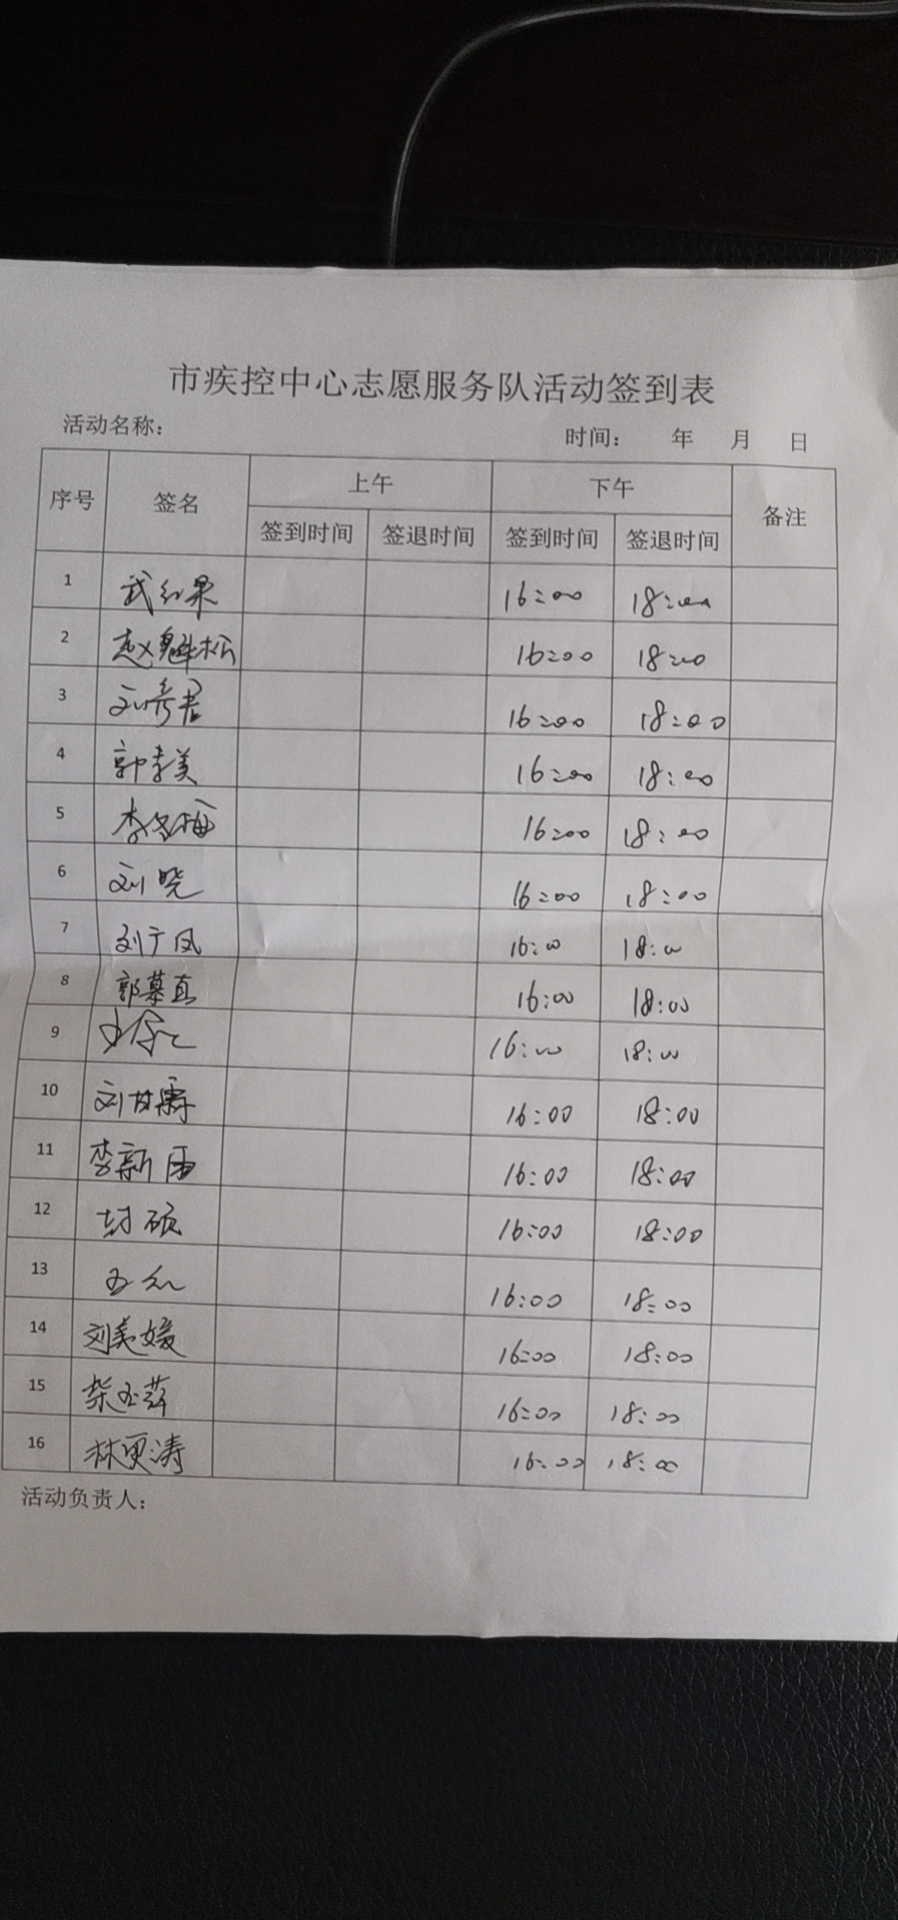 市疾控中心志愿服务队活动签到表
活动名称： 时间： 年 月 日
序号 签名 上午 下午 备注
签到时间 签退时间 签到时间 签退时间
1 武红果 16:00 18:00
2 赵魁松 16:00 18:00
3 刘秀君 16:00 18:00
4 郭孝美 16:00 18:00
5 李冬梅 16:00 18:00
6 刘晓 16:00 18:00
7 刘于凤 16:00 18:00
8 郭慕直 16:00 18:00
9 16:00 18:00
10 刘甘霖 16:00 18:00
11 李新雨 16:00 18:00
12 封硕 16:00 18:00
13 16:00 18:00
14 刘美媛 16:00 18:00
15 柴玉萍 16:00 18:00
16 林更涛 16:00 18:00
活动负责人：